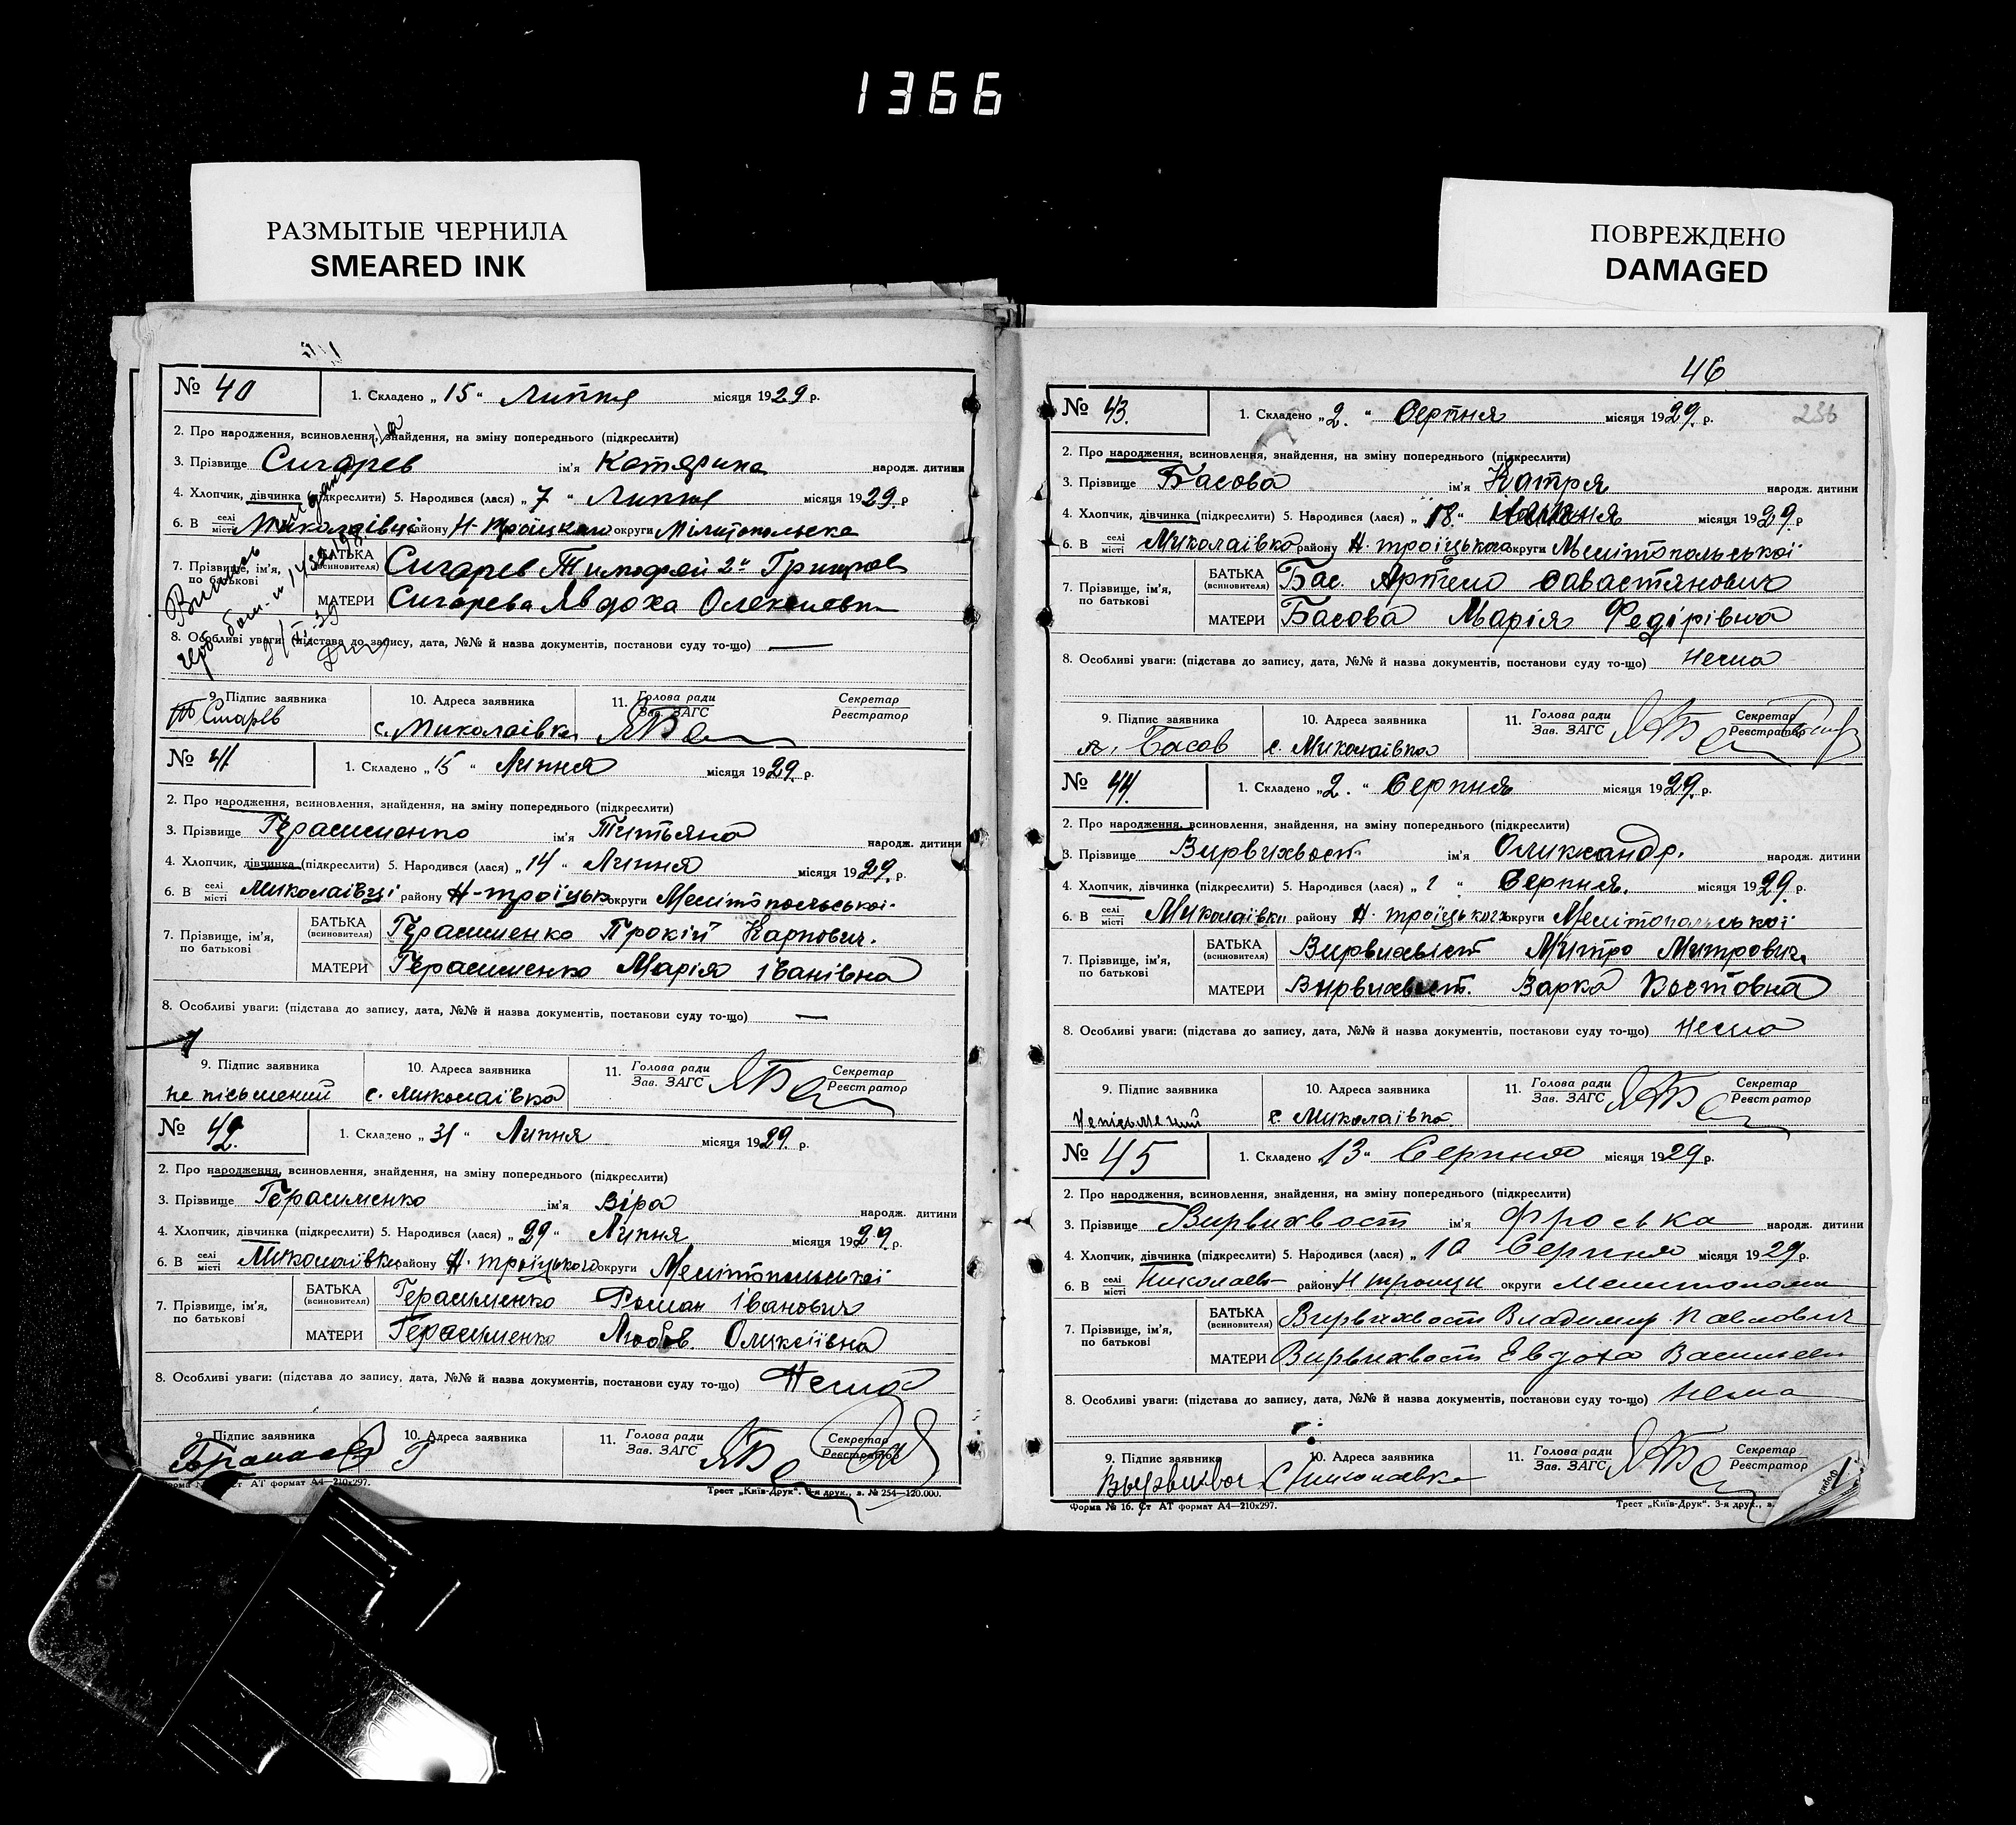 1366
РАЗМЫТЫЕ ЧЕРНИЛА
SMEARED INK
ПОВРЕЖДЕНО
DAMAGED
№ 40
1. Складено „ 15 “ Липня місяця 1929 р.
2. Про народження, всиновлення, знайдення, на зміну попереднього (підкреслити)
3. Прізвище Сигарев ім'я Катерина народж. дитини
4. Хлопчик, дівчинка (підкреслити) 5. Народився (лася) „ 7 “ Липня місяця 1929. р
6. В селі місті Миколаівці району Н-Троіцкого округи Мілитопольска
7. Прізвище, ім'я, по батькові
БАТЬКА (всиновителя) Сигарев Тимофей 2й
МАТЕРИ Сигарева Явдоха
8. Особливі уваги: (підстава до запису, дата, №№ й назва документів, постанови суду то-що) —
9. Підпис заявника
10. Адреса заявника с. Миколаівка
11. Голова ради Зав. ЗАГС
Секретар Реєстратор
№ 41.
1. Складено „ 15 “ Липня місяця 1929. р.
2. Про народження, всиновлення, знайдення, на зміну попереднього (підкреслити)
3. Прізвище Герасименко ім'я Титьяна народж. дитини
4. Хлопчик, дівчинка (підкреслити) 5. Народився (лася) „ 14 “ Липня місяця 1929. р.
6. В селі місті Миколаівці району Н-троіцьк округи Мелітопольськоі.
7. Прізвище, ім'я, по батькові
БАТЬКА (всиновителя) Герасименко Прокіп Карпович.
МАТЕРИ Герасименко Марія іванівна
8. Особливі уваги: (підстава до запису, дата, №№ й назва документів, постанови суду то-що) —
9. Підпис заявника не пісьмений
10. Адреса заявника с. Миколаівка
11. Голова ради Зав. ЗАГС
Секретар Реєстратор
№ 42.
1. Складено „ 31 “ Липня місяця 1929. р.
2. Про народження, всиновлення, знайдення, на зміну попереднього (підкреслити)
3. Прізвище Герасименко ім'я Віра народж. дитини
4. Хлопчик, дівчинка (підкреслити) 5. Народився (лася) „ 29 “ Липня місяця 1929. р.
6. В селі місті Миколаівка району Н. троіцького округи Мелітопольськоі
7. Прізвище, ім'я, по батькові
БАТЬКА (всиновителя) Герасименко Роман іванович
МАТЕРИ Герасименко Любов. Оликсіівна
8. Особливі уваги: (підстава до запису, дата, №№ й назва документів, постанови суду то-що) Нема
9. Підпис заявника
10. Адреса заявника
11. Голова ради Зав. ЗАГС
Секретар Реєстратор
ст АТ формат А4—210х297.
Трест „Київ-Друк“. 3-я друк., з. № 254—120.000.
46
№ 43.
1. Складено „ 2. “ Серпня місяця 1929. р.
2. Про народження, всиновлення, знайдення, на зміну попереднього (підкреслити)
3. Прізвище Басова ім'я Катря народж. дитини
4. Хлопчик, дівчинка (підкреслити) 5. Народився (лася) „ 18. “ місяця 1929. р
6. В селі місті Миколаівка району Н. троіцького округи Мелітопольськоі
7. Прізвище, ім'я, по батькові
БАТЬКА (всиновителя) Бас. Артем Савастянович
МАТЕРИ Басова Марія Федірівна
8. Особливі уваги: (підстава до запису, дата, №№ й назва документів, постанови суду то-що) Нема
9. Підпис заявника А. Басов
10. Адреса заявника с. Миколаівка
11. Голова ради Зав. ЗАГС
Секретар Реєстратор
№ 44.
1. Складено „ 2. “ Серпня місяця 1929. р.
2. Про народження, всиновлення, знайдення, на зміну попереднього (підкреслити)
3. Прізвище Вирвихвост. ім'я Оликсандр. народж. дитини
4. Хлопчик, дівчинка (підкреслити) 5. Народився (лася) „ 1 “ Серпня. місяця 1929. р.
6. В селі місті Миколаівки району Н. троіцького округи Мелітопольськоі
7. Прізвище, ім'я, по батькові
БАТЬКА (всиновителя) Вирвихвіст Митро Митрович.
МАТЕРИ Вирвихвист. Варка Костовна
8. Особливі уваги: (підстава до запису, дата, №№ й назва документів, постанови суду то-що) Нема
9. Підпис заявника Непісьмений
10. Адреса заявника с. Миколаівка.
11. Голова ради Зав. ЗАГС
Секретар Реєстратор
№ 45
1. Складено „ 13 “ Серпня місяця 1929 р.
2. Про народження, всиновлення, знайдення, на зміну попереднього (підкреслити)
3. Прізвище Вирвихвост ім'я Фроська народж. дитини
4. Хлопчик, дівчинка (підкреслити) 5. Народився (лася) „ 10 Серпня місяця 1929 р.
6. В селі місті Николаев району Н троицк округи Мелитополь
7. Прізвище, ім'я, по батькові
БАТЬКА (всиновителя) Вирвихвост Владимир Павлович
МАТЕРИ Вирвихвост Евдоха Василевн
8. Особливі уваги: (підстава до запису, дата, №№ й назва документів, постанови суду то-що) Нема
9. Підпис заявника
10. Адреса заявника С Николаевка
11. Голова ради Зав. ЗАГС
Секретар Реєстратор
Форма № 16. Ст АТ формат А4—210х297.
Трест „Київ-Друк“. 3-я друк., з.